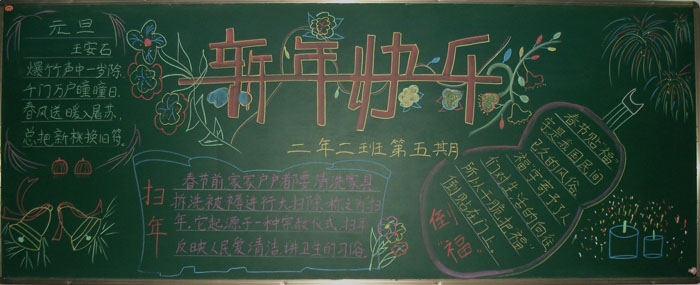 元旦
王安石
爆竹声中一岁除,
千门万户曈曈日.
春风送暖入屠苏,
总把新桃换旧符.
新年快乐
二年二班第五期
扫年
春节前家家户户都要清洗家具
拆洗被褥进行大扫除,称之为扫
年,它起源于一种宗教仪式,扫年
反映人民爱清洁讲卫生的习俗.
倒"福"
春节贴"福"
它是我国民间
已久的风俗
"福"寄予了人
们对生活的向往
所以人干脆把"福"
倒贴在门上.